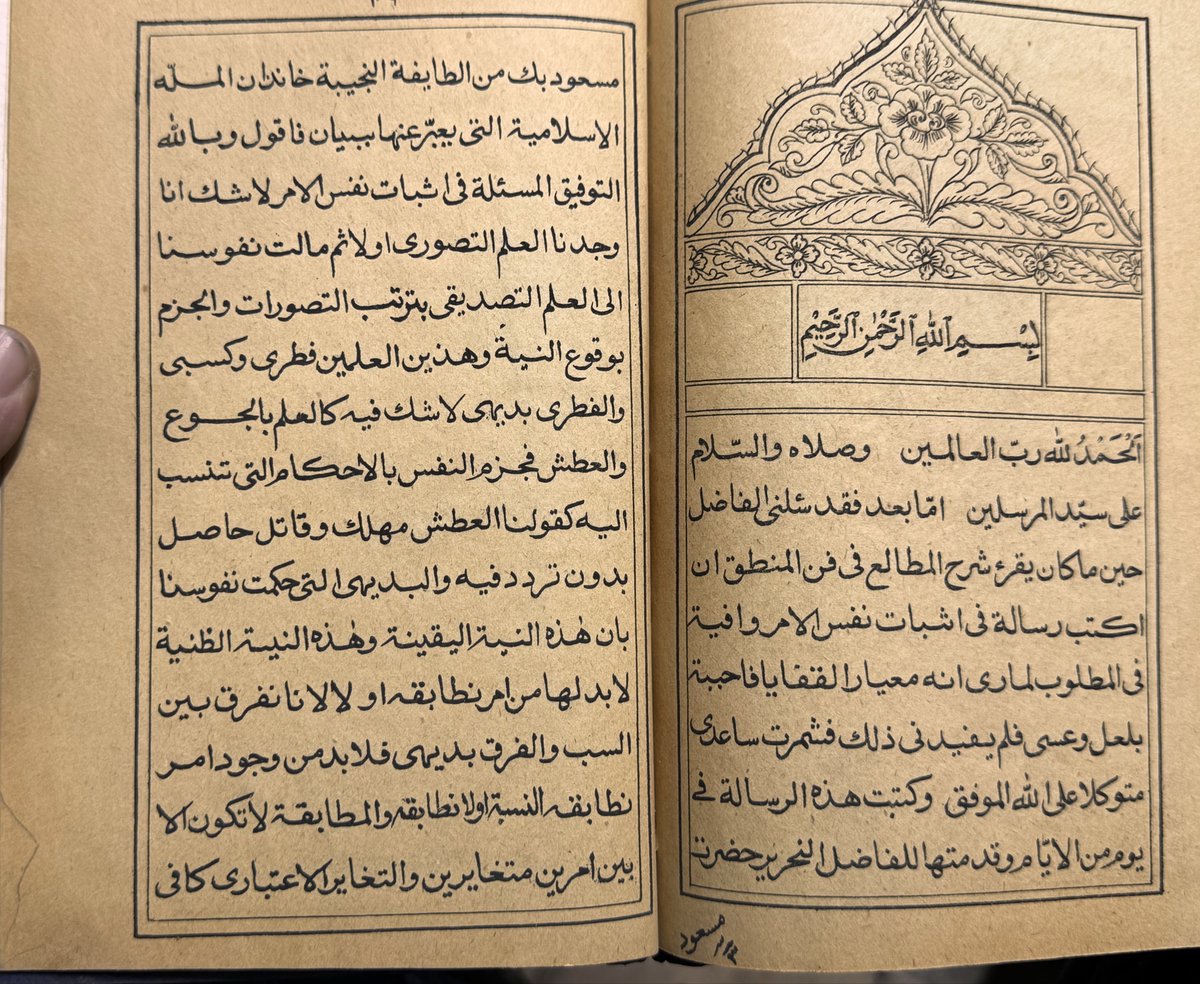 بِسْمِ ٱللهِ ٱلرَّحْمٰنِ ٱلرَّحِيْمِ
اَلْحَمْدُ لله ربّ العالمين وصلاه والسّلام
على سيّد المرسلين امّا بعد فقد سئلنى الفاضل
حين ما كان يقرء شرح المطالع فى فن المنطق ان
اكتب رسالة فى اثبات نفس الامر وافية
فى المطلوب لما رى انه معيار القضايا فاجبته
بلعل وعسى فلم يفيدنى ذلك فشمرت ساعدى
متوكلا على الله الموفق وكتبت هذه الرسالة فى
يوم من الايّام وقدمتها للفاضل النحرير حضرت
مسعود
مسعود بك من الطايفة النجيبة خاندان المله
الاسلامية التى يعبّر عنها ببيان فاقول وبالله
التوفيق المسئلة فى اثبات نفس الامر لا شك انا
وجدنا العلم التصورى اولا ثم مالت نفوسنا
الى العلم التصديقى بترتب التصورات والجزم
بوقوع النية وهذين العلمين فطرى وكسبى
والفطرى بديهى لا شك فيه كالعلم بالجوع
والعطش فجزم النفس بالاحكام التى تنسب
اليه كقولنا العطش مهلك وقاتل حاصل
بدون تردد فيه والبديهى التى حكمت نفوسنا
بان هٰذه النية اليقينة وهٰذه النية الظنية
لا بد لها من امر نطابقه او لا لانا نفرق بين
السب والفرق بديهى فلا بد من وجود امر
نطابقه النسبة اولا نطابقه والمطابقة لا تكون الا
بين امرين متغايرين والتغاير الاعتبارى كافى